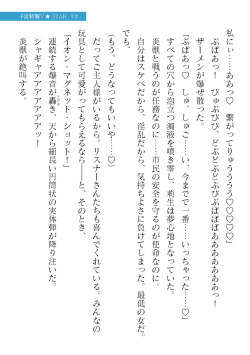 子宮特撃！★STAR☆リオ
私に……ああっ♡ 繋がってりゅうううう♡♡♡♡♡」
ぶばあっ！ びゅぶびび、どぶどぶどぶびぶばばあああああっ！
ザーメンが爆ぜ散った。
「ぶばあっ♡ しゅ、しゅごーい、今までで一番……いっちゃった……♡」
すべての穴から泡立つ濁液を噴き零し、莉生は夢心地となっていた。
炎獣と戦うのが任務なのに……市民の安全を守るのが使命なのに。
自分はスケベだから、淫乱だから、気持ちよさに負けてしまった。最低の女だ。
でも。
「もう、どうなってもいいや……♡」
だってご主人様がいるから。リスナーさんたちも喜んでくれている。みんなの
玩具として可愛がってもらえるなら――と、そのとき。
「イオン・マグネット・ショット！」
連続する爆音が轟き、天から細長い円筒状の実体弾が降り注いだ。
シャギャアアアアアアアアッ！
炎獣が絶叫する。